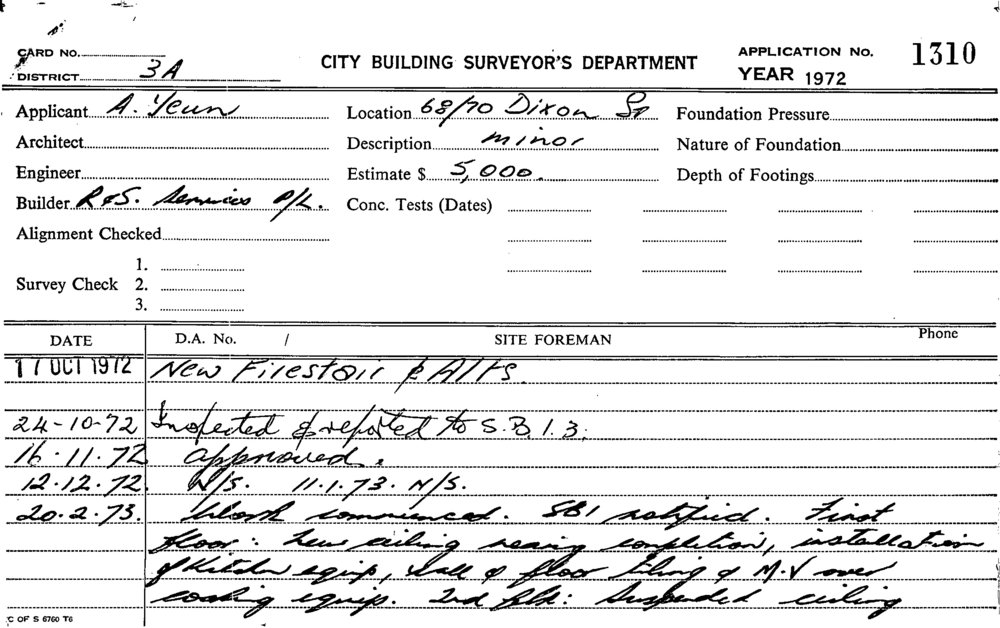 CARD NO.
DISTRICT 3A
CITY BUILDING SURVEYOR'S DEPARTMENT
APPLICATION No. 1310
YEAR 1972
Applicant A. Yeun
Location 68/70 Dixon St
Foundation Pressure
Architect
Description minor
Nature of Foundation
Engineer
Estimate $ 5,000.
Depth of Footings
Builder R&S. Services P/L.
Conc. Tests (Dates)
Alignment Checked
Survey Check 1.
2.
3.
DATE D.A. No. / SITE FOREMAN Phone
17 OCT 1972 New Firestair & Alts.
24-10-72 Inspected & reported to S.B.I.3.
16.11.72 approved.
12.12.72. N/S. 11.1.73. N/S.
20.2.73. Work commenced. SBI notified. First
floor: New ceiling nearing completion, installation
of Kitchen equip, wall & floor tiling & M.V over
cooking equip. 2nd flr: Suspended ceiling
C OF S 6760 T6